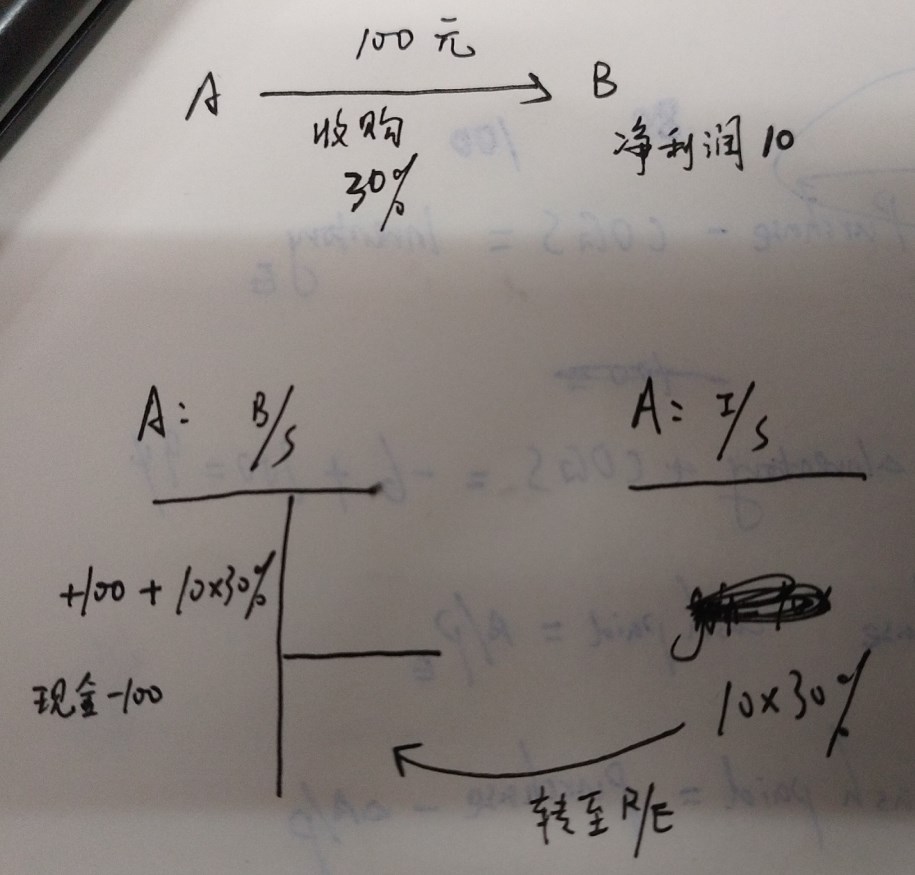 100元
A → B
收购
30%
净利润10
A: B/S
A: I/S
+100 + 10×30%
现金-100
10×30%
转至R/E